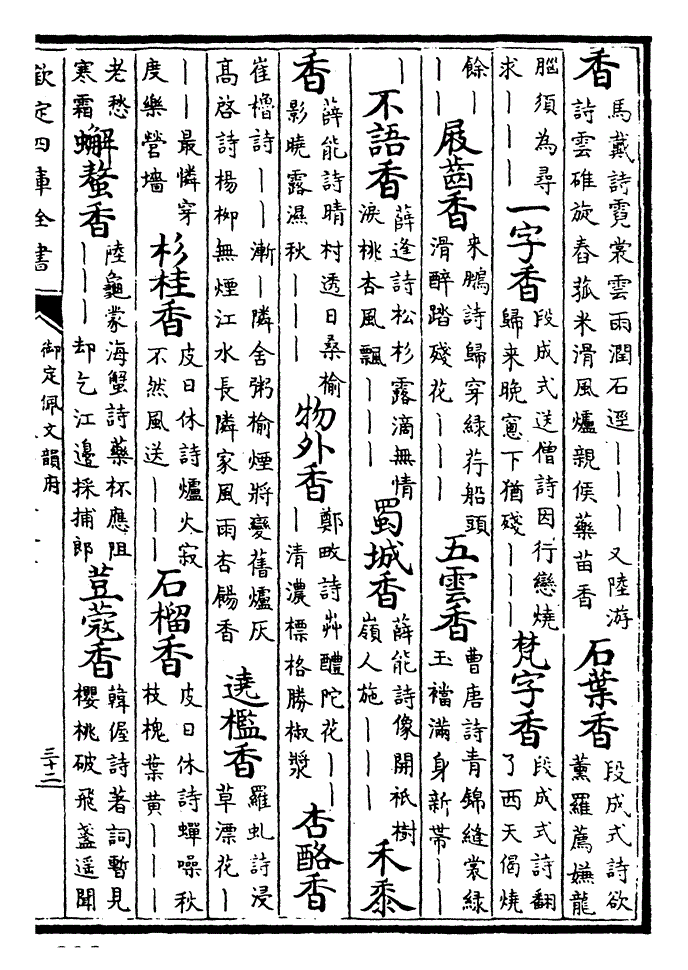 香 馬戴詩霓裳雲雨潤石逕｜｜｜又陸游詩雲碓旋舂菰米滑風爐親候藥苗香 石葉香 段成式詩欲薰羅薦嫌龍
腦須為尋求｜｜｜ 一字香 段成式送僧詩因行戀燒歸來晚窻下猶殘｜｜｜ 梵字香 段成式詩翻了西天偈燒
餘｜｜｜ 屐齒香 來鵬詩歸穿緑荇船頭滑醉踏殘花｜｜｜ 五雲香 曹唐詩青錦縫裳緑玉襠滿身新帯｜｜
｜ 不語香 薛逢詩松杉露滴無情淚桃杏風飄｜｜｜ 蜀城香 薛能詩像開祇樹嶺人施｜｜｜ 禾黍
香 薛能詩晴村透日桑榆影曉露濕秋｜｜｜ 物外香 鄭畋詩艸醴陀花｜｜｜清濃標格勝椒漿 杏酪香
崔櫓詩｜｜漸｜隣舍粥榆煙將變舊爐灰高啓詩楊柳無煙江水長隣家風雨杏餳香 遶檻香 羅虬詩浸草漂花｜
｜｜最憐穿度樂營墻 杉桂香 皮日休詩爐火寂不然風送｜｜｜ 石榴香 皮日休詩蟬噪秋枝槐葉黄｜｜｜
老愁寒霜 蠏螯香 陸龜蒙海蟹詩藥杯應阻｜｜｜却乞江邊採捕郎 荳蔻香 韓偓詩著詞暫見櫻桃破飛盞遥聞
欽定四庫全書 御定佩文韻府 三十二